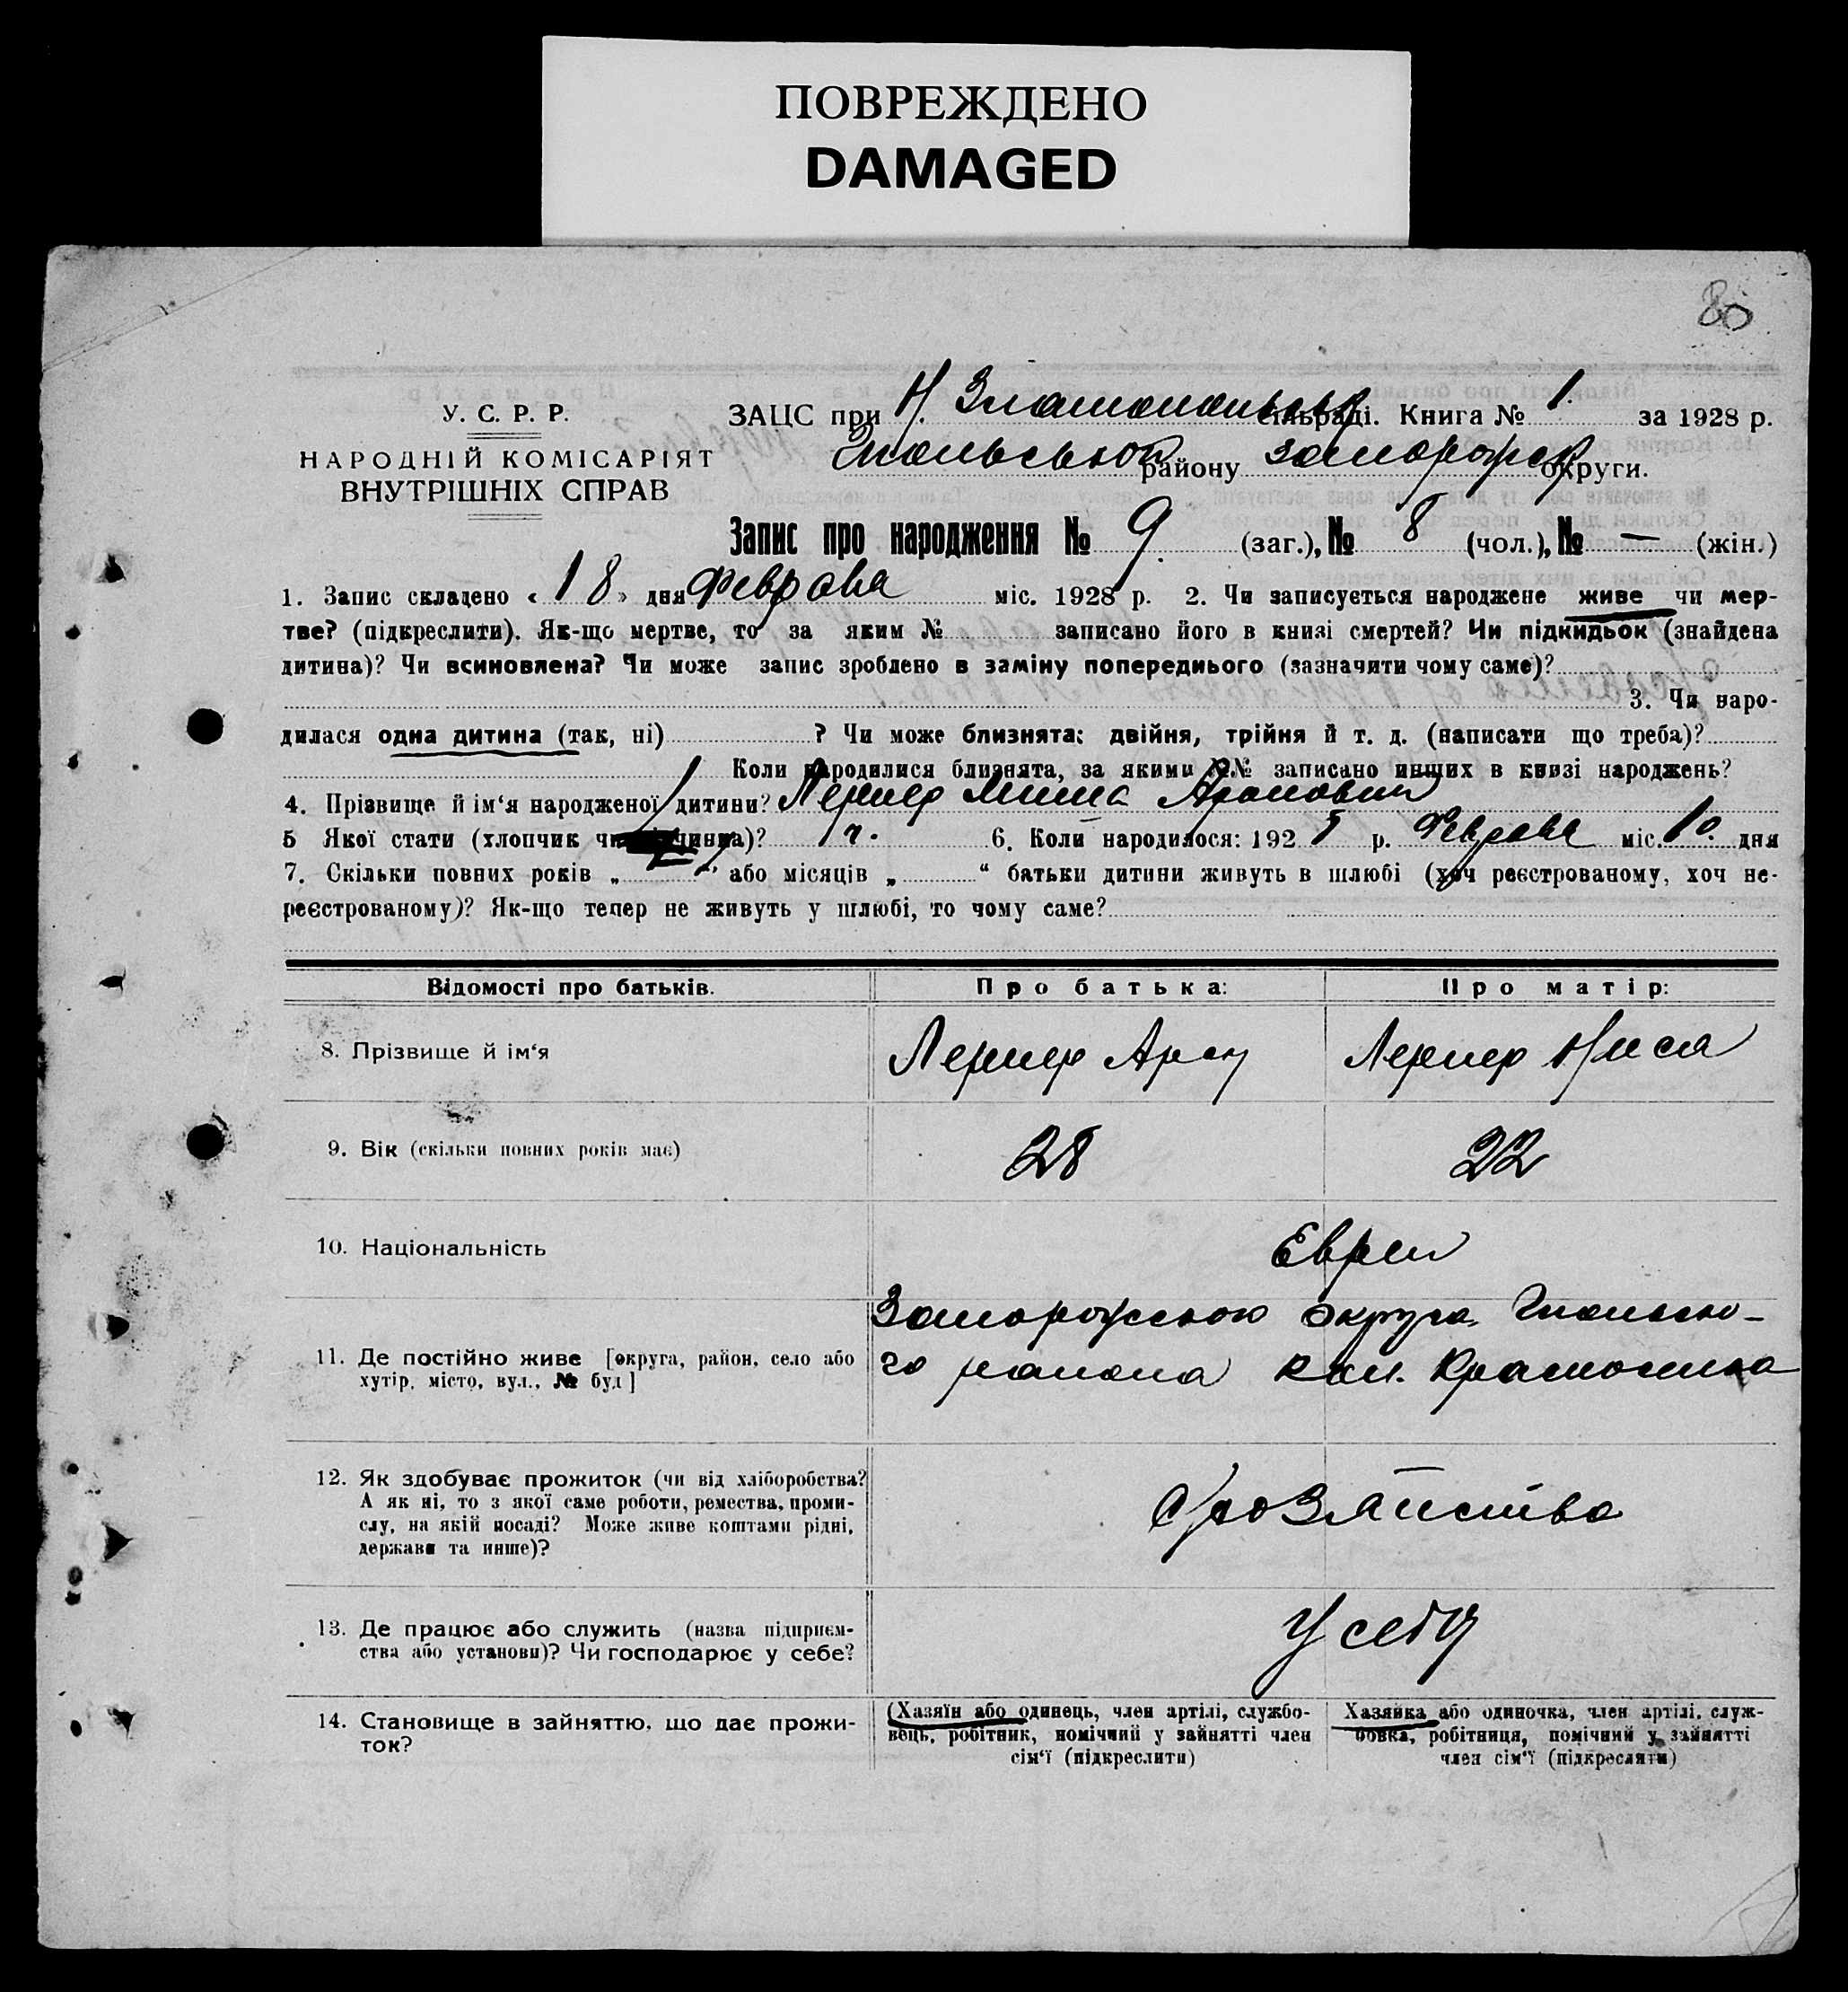 ПОВРЕЖДЕНО
DAMAGED
80
У. С. Р. Р.
НАРОДНІЙ КОМІСАРІЯТ
ВНУТРІШНІХ СПРАВ
ЗАЦС при Н. Златопольськ сільраді. Книга № 1 за 1928 р.
району запорожск округи.
Запис про народження № 9. (заг.), № 8 (чол.), № — (жін.)
1. Запис складено « 18 » дня Февраля міс. 1928 р. 2. Чи записується народжене живе чи мер-
тве? (підкреслити). Як-що мертве, то за яким № записано його в книзі смертей? Чи підкидьок (знайдена
дитина)? Чи всиновлена? Чи може запис зроблено в заміну попереднього (зазначити чому саме)?
3. Чи наро-
дилася одна дитина (так, ні) ? Чи може близнята: двійня, трійня й т. д. (написати що треба)?
Коли народилися близнята, за якими №№ записано инших в книзі народжень?
4. Прізвище й ім‘я народженої дитини? Лернер Миша Аронович
5 Якої стати (хлопчик чи дівчинка)? ч. 6. Коли народилося: 192 8 р. Февраля міс. 10. дня
7. Скільки повних років „ “ або місяців „ “ батьки дитини живуть в шлюбі (хоч реєстрованому, хоч не-
реєстрованому)? Як-що тепер не живуть у шлюбі, то чому саме?
Відомості про батьків. Про батька: Про матір:
8. Прізвище й ім‘я Лернер Арон Лернер
9. Вік (скільки повних років має) 28 22
10. Національність Евреи
Запорожского округа,
11. Де постійно живе [округа, район, село або го района кол.
хутір, місто, вул., № буд]
12. Як здобуває прожиток (чи від хліборобства?
А як ні, то з якої саме роботи, ремества, проми-
слу, на якій посаді? Може живе коштами рідні,
держави та инше)?
хозяйство
13. Де працює або служить (назва підприєм-
ства або установи)? Чи господарює у себе?
У себя
14. Становище в зайняттю, що дає прожи-
ток?
(Хазяїн або одинець, член артілі, службо-
вець, робітник, помічний у зайнятті член
сім‘ї (підкреслити)
Хазяйка або одиночка, член артілі, служ-
бовка, робітниця, помічний у зайнятті
член сім‘ї (підкреслити)